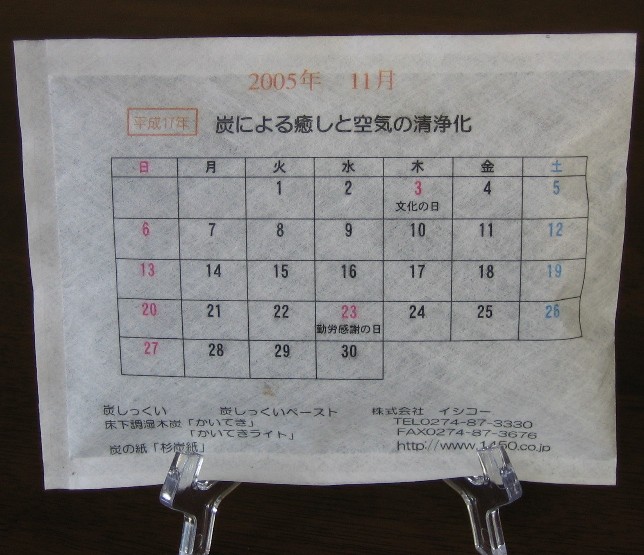 2005年 11月
平成17年 炭による癒しと空気の清浄化
日 月 火 水 木 金 土
1 2 3 4 5
文化の日
6 7 8 9 10 11 12
13 14 15 16 17 18 19
20 21 22 23 24 25 26
勤労感謝の日
27 28 29 30
炭しっくい 炭しっくいペースト 株式会社 イシコー
床下調湿木炭「かいてき」 TEL0274-87-3330
「かいてきライト」 FAX0274-87-3676
炭の紙「杉炭紙」 http://www.1450.co.jp